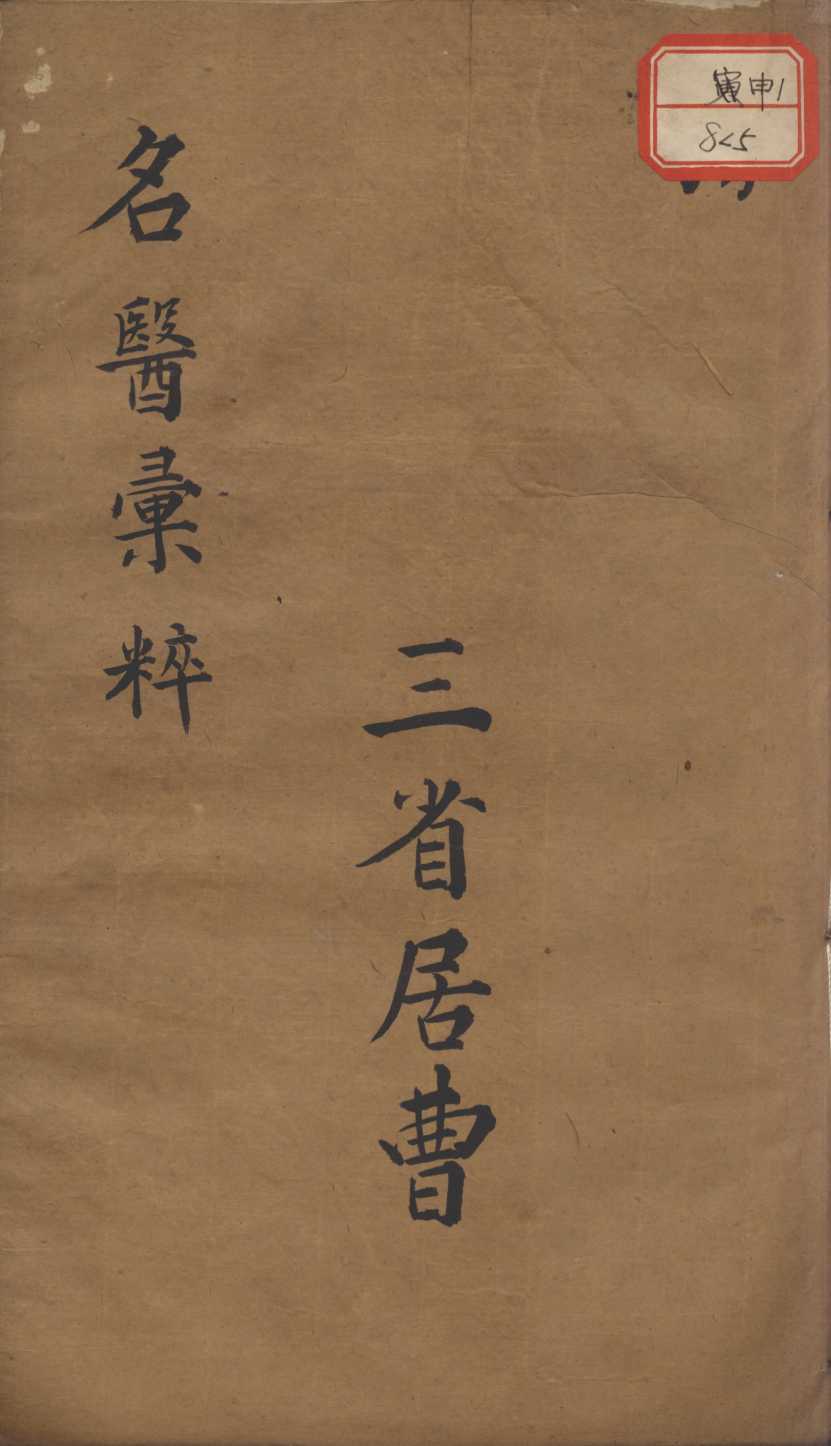 寅申1
825
三省居曹
名醫彙粹